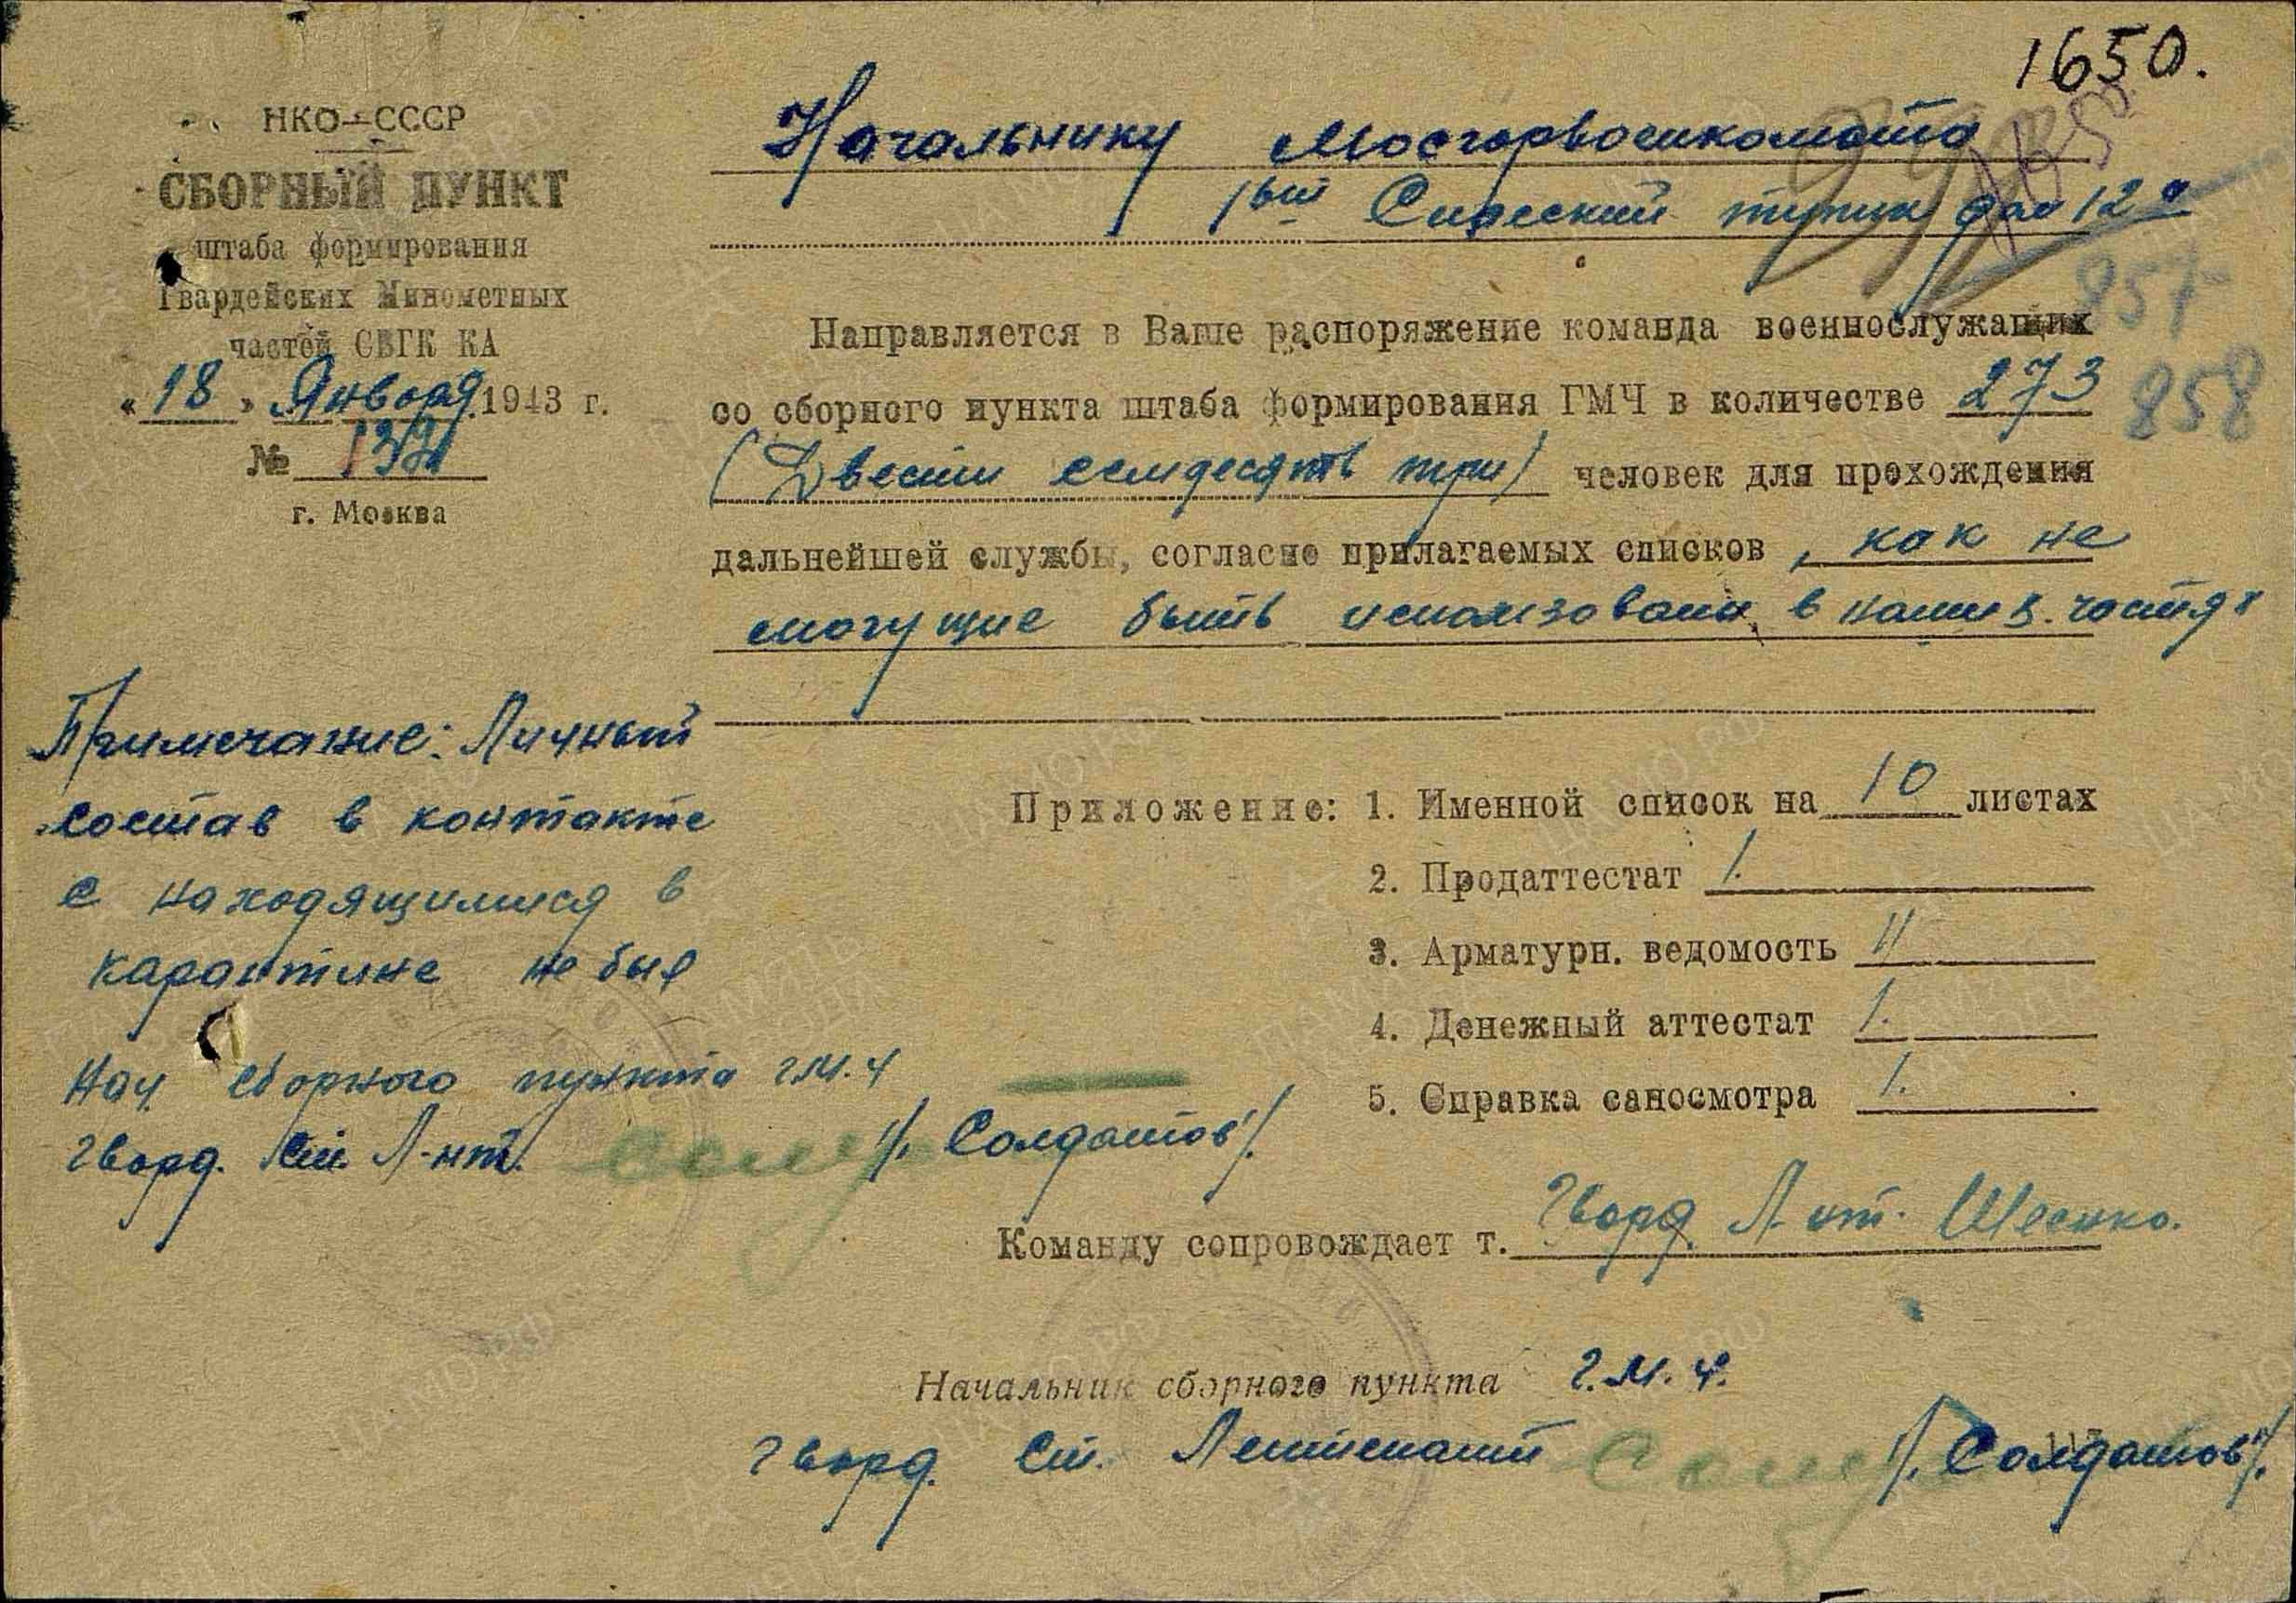 1650.
НКО-СССР
СБОРНЫЙ ПУНКТ
штаба формирования
Гвардейских Минометных
частей СВГК КА
« 18 » Января 1943 г.
№
г. Москва
Начальнику Мосгорвоенкомата
1вый тупик дом 12а
957
858
Направляется в Ваше распоряжение команда военнослужащих
со сборного пункта штаба формирования ГМЧ в количестве 273
(Двести семдесять три) человек для прохождения
дальнейшей службы, согласно прилагаемых списков, как не
могущие быть использованы в наших частях
Примечание: Личный
состав в контакте
с находящимися в
карантине не был
Нач. сборного пункта г.м.ч
гвард. Ст. Л-нт. /. Солдатов /.
Приложение: 1. Именной список на 10 листах
2. Продаттестат 1.
3. Арматурн. ведомость 11
4. Денежный аттестат 1.
5. Справка саносмотра 1.
Команду сопровождает т. Гвард. Л-нт.
Начальник сборного пункта г.м.ч.
гвард. Ст. Лейтенант /. Солдатов /.